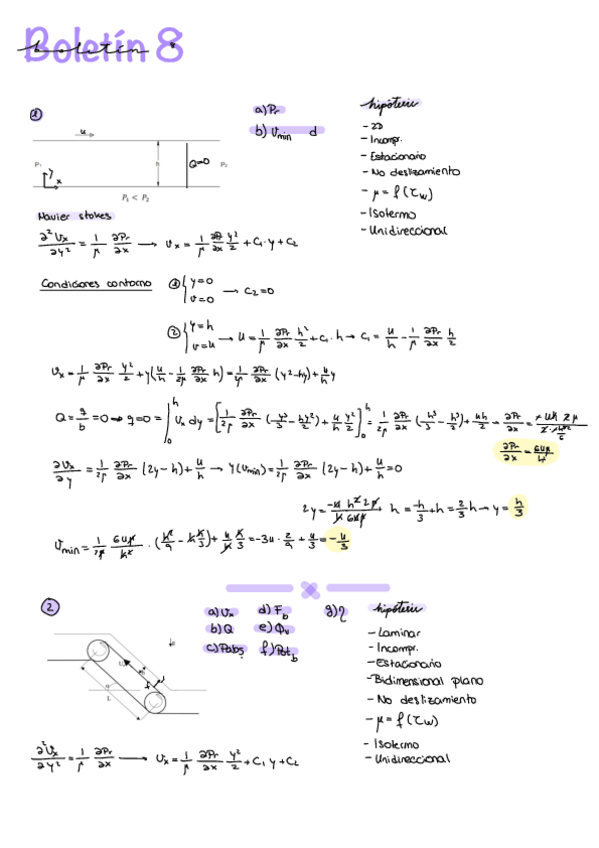 Boletín 8
boletín
①
a) Pr
b) Vmin d
hipótesis
- 2D
- Incompr.
- Estacionario
- No deslizamiento
- μ = f(τw)
- Isotermo
- Unidireccional
u
P₁
y
x
h
Q=0
P₂
P₁ < P₂
Navier stokes
∂²Vx/∂y² = 1/μ ∂Pr/∂x → Vx = 1/μ ∂Pr/∂x y²/2 + C₁·y + C₂
Condiciones contorno ① { y=0 v=0 → C₂=0
② { y=h v=u → u = 1/μ ∂Pr/∂x h²/2 + C₁·h → C₁ = u/h - 1/μ ∂Pr/∂x h/2
Vx = 1/μ ∂Pr/∂x y²/2 + y(u/h - 1/2μ ∂Pr/∂x h) = 1/2μ ∂Pr/∂x (y²-hy) + u/h y
Q = q/b = 0 → q=0 = ∫₀ʰ Vx dy = [1/2μ ∂Pr/∂x (y³/3 - hy²/2) + u/h y²/2]₀ʰ = 1/2μ ∂Pr/∂x (h³/3 - h³/2) + uh/2
∂Pr/∂x = 6uμ/h²
∂Vx/∂y = 1/2μ ∂Pr/∂x (2y-h) + u/h → y(Vmin) = 1/2μ ∂Pr/∂x (2y-h) + u/h = 0
2y = -u h² 2μ / h 6uμ + h = -h/3 + h = 2/3 h → y = h/3
Vmin = 1/2μ 6uμ/h² · (h²/9 - h·h/3) + u/h h/3 = -3u · 2/9 + u/3 = -u/3
②
a) Vx d) Fb g) η
b) Q e) Φv
c) Pabs f) Potb
hipótesis
- Laminar
- Incompr.
- Estacionario
- Bidimensional plano
- No deslizamiento
- μ = f(τw)
- Isotermo
- Unidireccional
L
∂²Vx/∂y² = 1/μ ∂Pr/∂x → Vx = 1/μ ∂Pr/∂x y²/2 + C₁ y + C₂